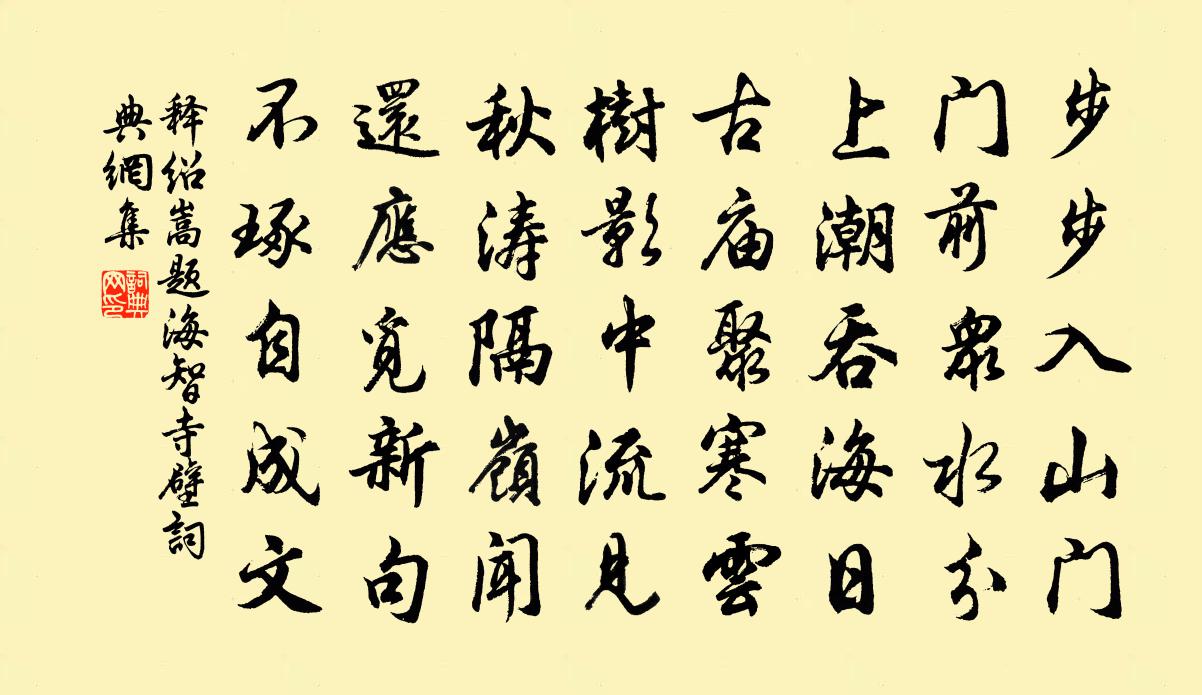 步步入山门
门前衆水分
上潮吞海日
古庙聚寒雲
樹影中流見
秋涛隔嶺闻
還應覓新句
不琢自成文
释绍嵩题海智寺壁詞
典網集
詞典
网印